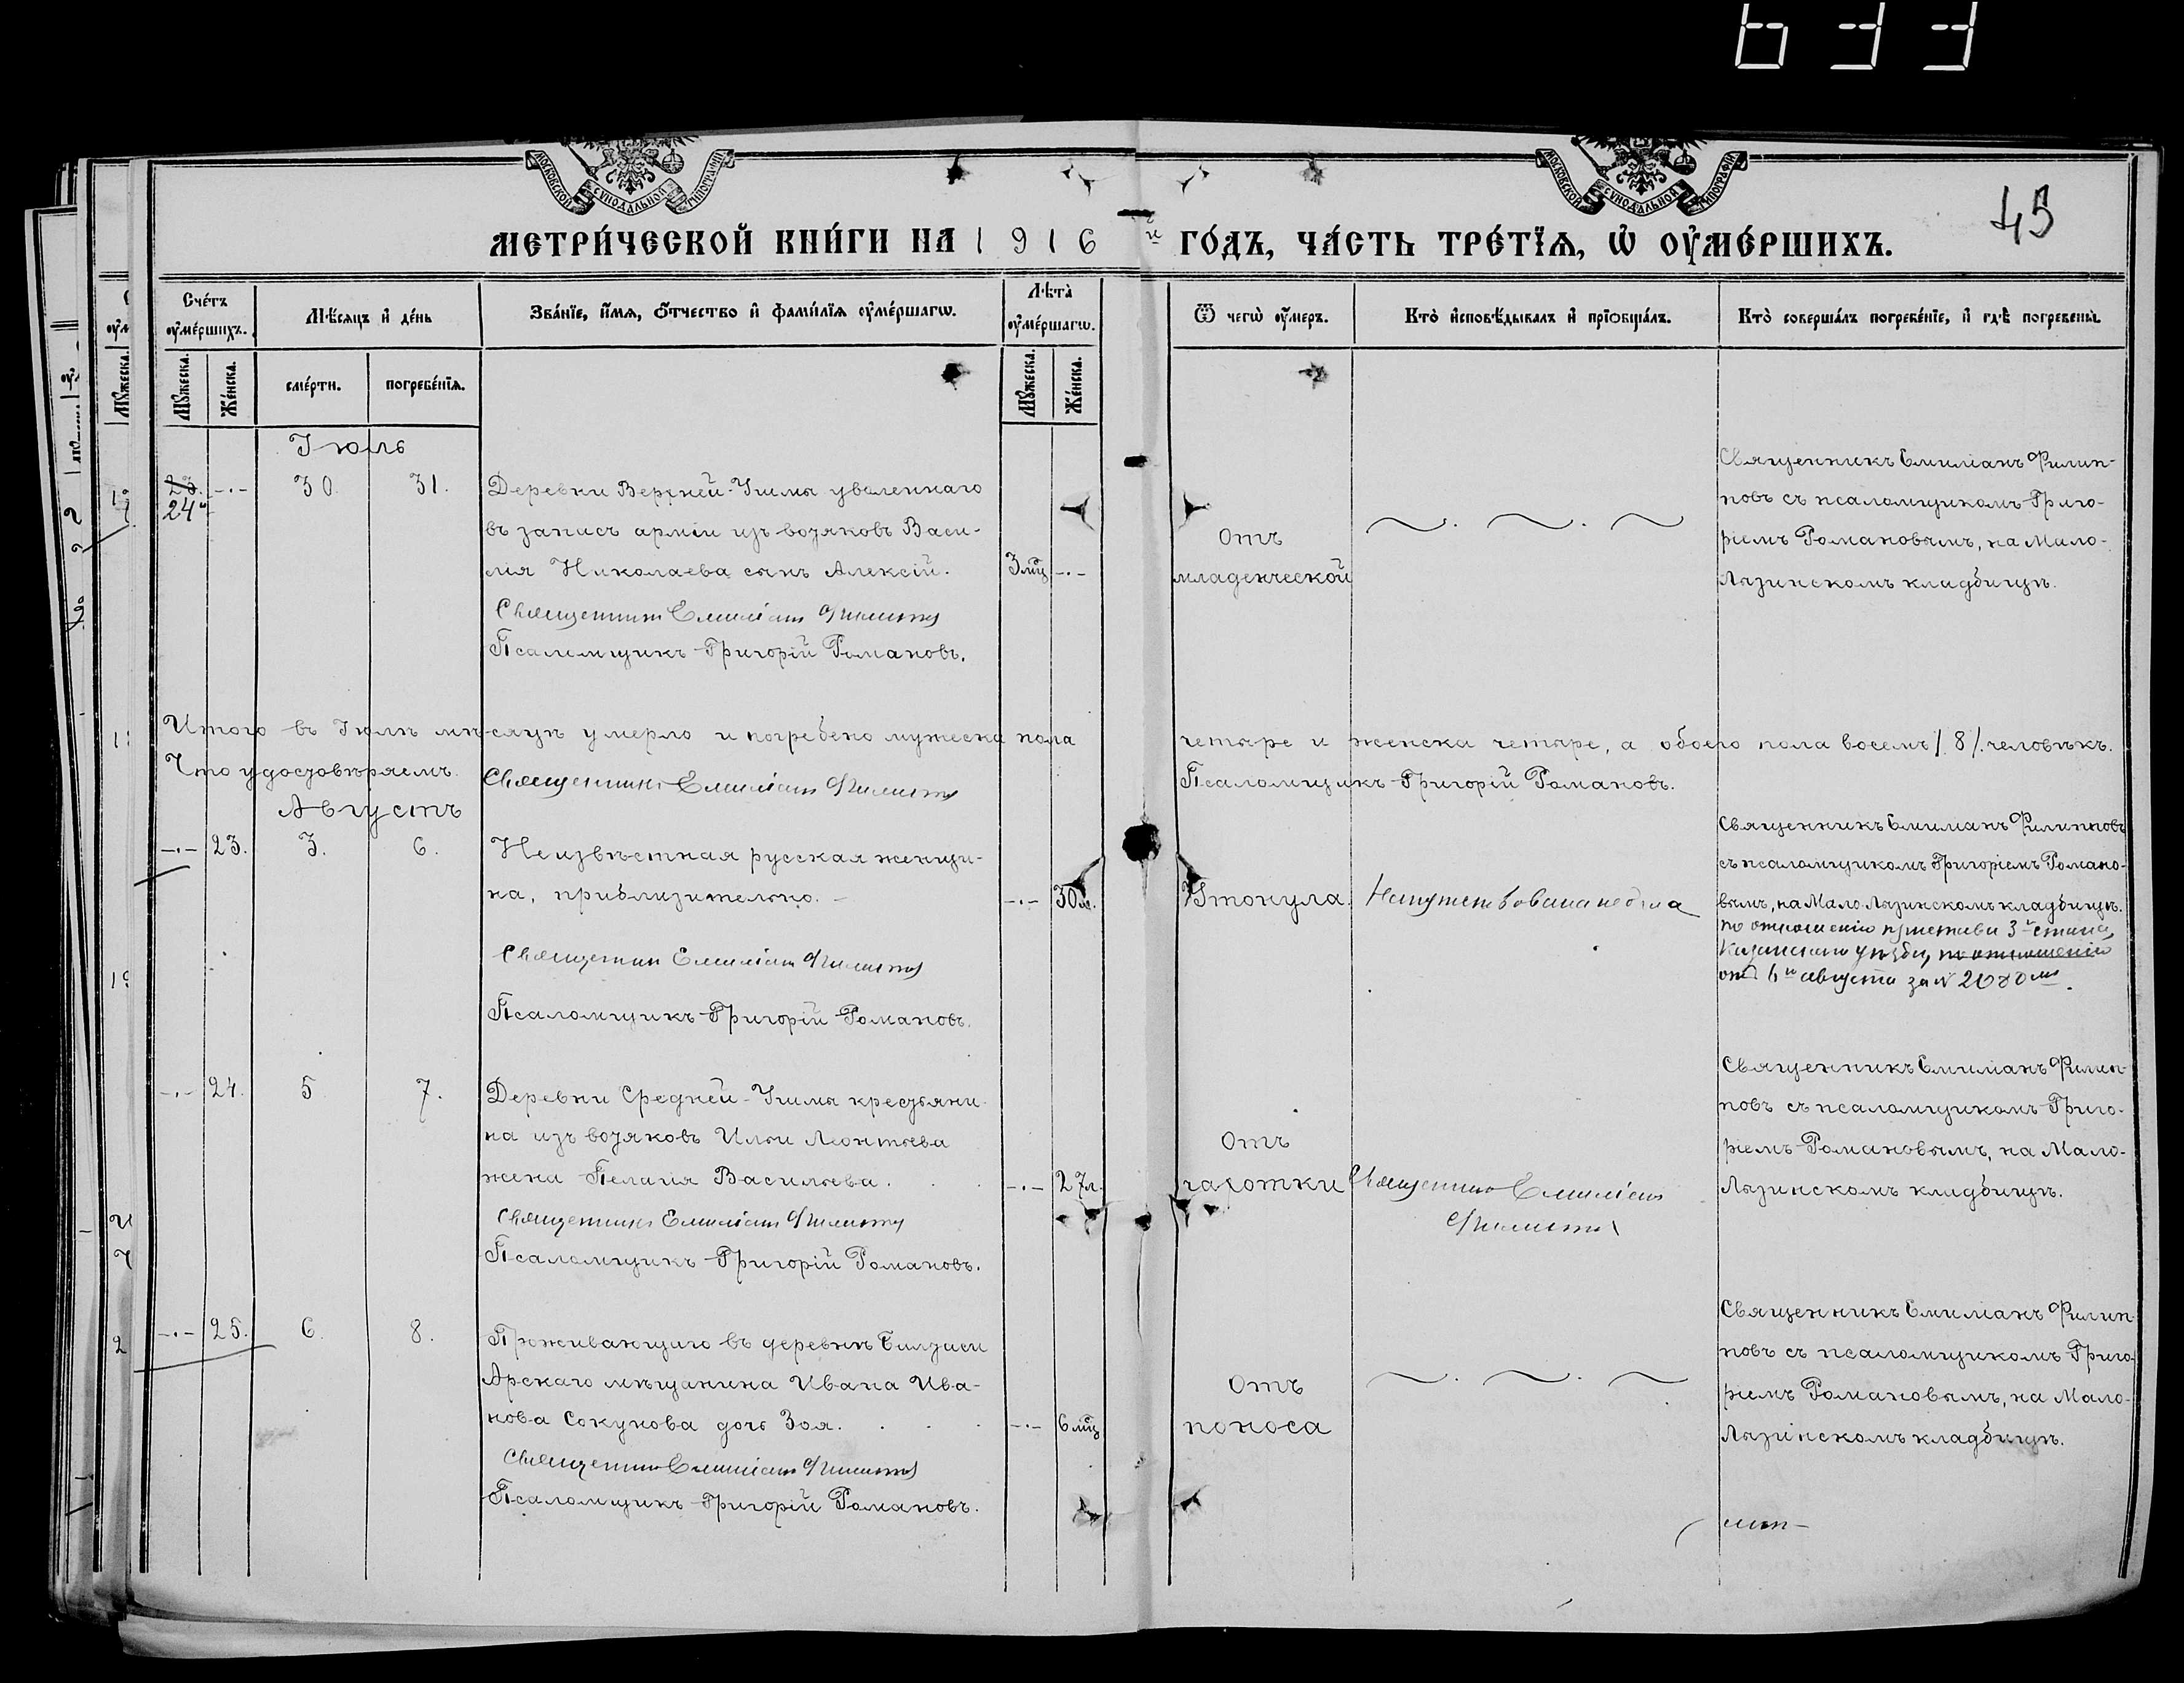 633
МОСКОВСКОЙ СѴНОДАЛЬНОЙ ТИПОГРАФІИ
МОСКОВСКОЙ СѴНОДАЛЬНОЙ ТИПОГРАФІИ
45
МЕТРИ́ЧЕСКОЙ КНИ́ГИ НА 1916 й ГО́ДЪ, ЧА́СТЬ ТРЕ́ТЇѦ, Ѡ҆ ОУ҆МЕ́РШИХЪ.
Сче́тъ оу҆ме́ршихъ.
Мѣ́сяцъ и҆ де́нь
Зва́нїе, и҆́мѧ, ѻ҆́тчество и҆ фами́лїѧ оу҆ме́ршагѡ.
Лѣта̀ оу҆ме́ршагѡ.
Ѿ чегѡ̀ оу҆́меръ.
Кто̀ и҆сповѣ́дывалъ и҆ прїѡбща́лъ.
Кто̀ соверша́лъ погребе́нїе, и҆ гдѣ̀ погребены̀.
Мꙋ́жеска.
Же́нска.
сме́рти.
погребе́нїѧ.
Мꙋ́жеска.
Же́нска.
Іюль
23.
24
-.-
30.
31.
Деревни Верхней-Ушмы уволеннаго
въ запасъ арміи изъ вотяковъ Васи-
лія Николаева сынъ Алексій.
3 мц
-.-
Священникъ Емиліанъ Филипповъ
Псаломщикъ Григорій Романовъ.
Отъ
младенческой
Священникъ Емиліанъ Филип-
повъ съ псаломщикомъ Григо-
ріемъ Романовымъ, на Мало-
Лызинскомъ кладбищѣ.
Итого въ Іюлѣ мѣсяцѣ умерло и погребено мужеска пола четыре и женска четыре, а обоего пола восемь /. 8 /. человѣкъ.
Что удостовѣряемъ. Священникъ Емиліанъ Филипповъ Псаломщикъ Григорій Романовъ.
Августъ
-.-
23.
3.
6.
Неизвѣстная русская женщи-
на, приблизительно. -
-.-
30 л.
Священникъ Емиліанъ Филипповъ
Псаломщикъ Григорій Романовъ.
Утонула.
Напутствована не была
Священникъ Емиліанъ Филипповъ
съ псаломщикомъ Григоріемъ Романо-
вымъ, на Мало-Лызинскомъ кладбищѣ.
по отношенію пристава 3го стана,
Казанскаго уѣзда, по отношенію
отъ 6го августа за №
-.-
24.
5
7.
Деревни Средней-Ушмы крестьяни-
на изъ вотяковъ Ильи Леонтьева
жена Пелагія Васильева.
-.-
27 л.
Священникъ Емиліанъ Филипповъ
Псаломщикъ Григорій Романовъ.
Отъ
чахотки
Священникъ Емиліанъ
Филипповъ
Священникъ Емиліанъ Филип-
повъ съ псаломщикомъ Григо-
ріемъ Романовымъ, на Мало-
Лызинскомъ кладбищѣ.
-.-
25.
6.
8.
Проживающаго въ деревнѣ
Арскаго мѣщанина Ивана Ива-
нова Сокунова дочь Зоя.
-.-
6 мц
Священникъ Емиліанъ Филипповъ
Псаломщикъ Григорій Романовъ.
Отъ
поноса
Священникъ Емиліанъ Филип-
повъ съ псаломщикомъ Григо-
ріемъ Романовымъ, на Мало-
Лызинскомъ кладбищѣ.